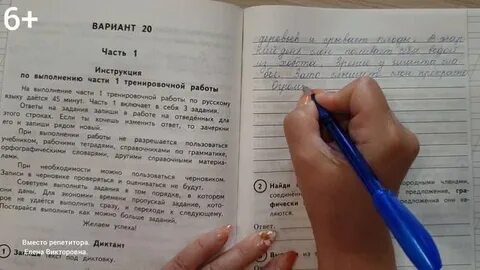 6+
ВАРИАНТ 20
Часть 1
Инструкция
по выполнению части 1 тренировочной работы
На выполнение части 1 тренировочной работы по русскому
языку даётся 45 минут. Часть 1 включает в себя 3 задания.
Ответы на задания запиши в работе на отведённых для
этого строках. Если ты хочешь изменить ответ, то зачеркни
его и запиши рядом новый.
При выполнении работы не разрешается пользоваться
учебником, рабочими тетрадями, справочниками по грамматике,
орфографическими словарями, другими справочными материа-
лами.
При необходимости можно пользоваться черновиком.
Записи в черновике проверяться и оцениваться не будут.
Советуем выполнять задания в том порядке, в котором
они даны. Для экономии времени пропускай задание, кото-
рое не удаётся выполнить сразу, и переходи к следующему.
Постарайся выполнить как можно больше заданий.
Желаем успеха!
1
Диктант
под диктовку.
Вместо репетитора.
Елена Викторовна.
деревьев и срывает плоды. В жар
слон поливает себя водой
из хобота. Зрение у гиганта сла
бое. Зато слышит слон прекрасно
2 Найди
родными членами,
предложение, гра-
фически
предложения они яв-
ляются.
Ответ:
из